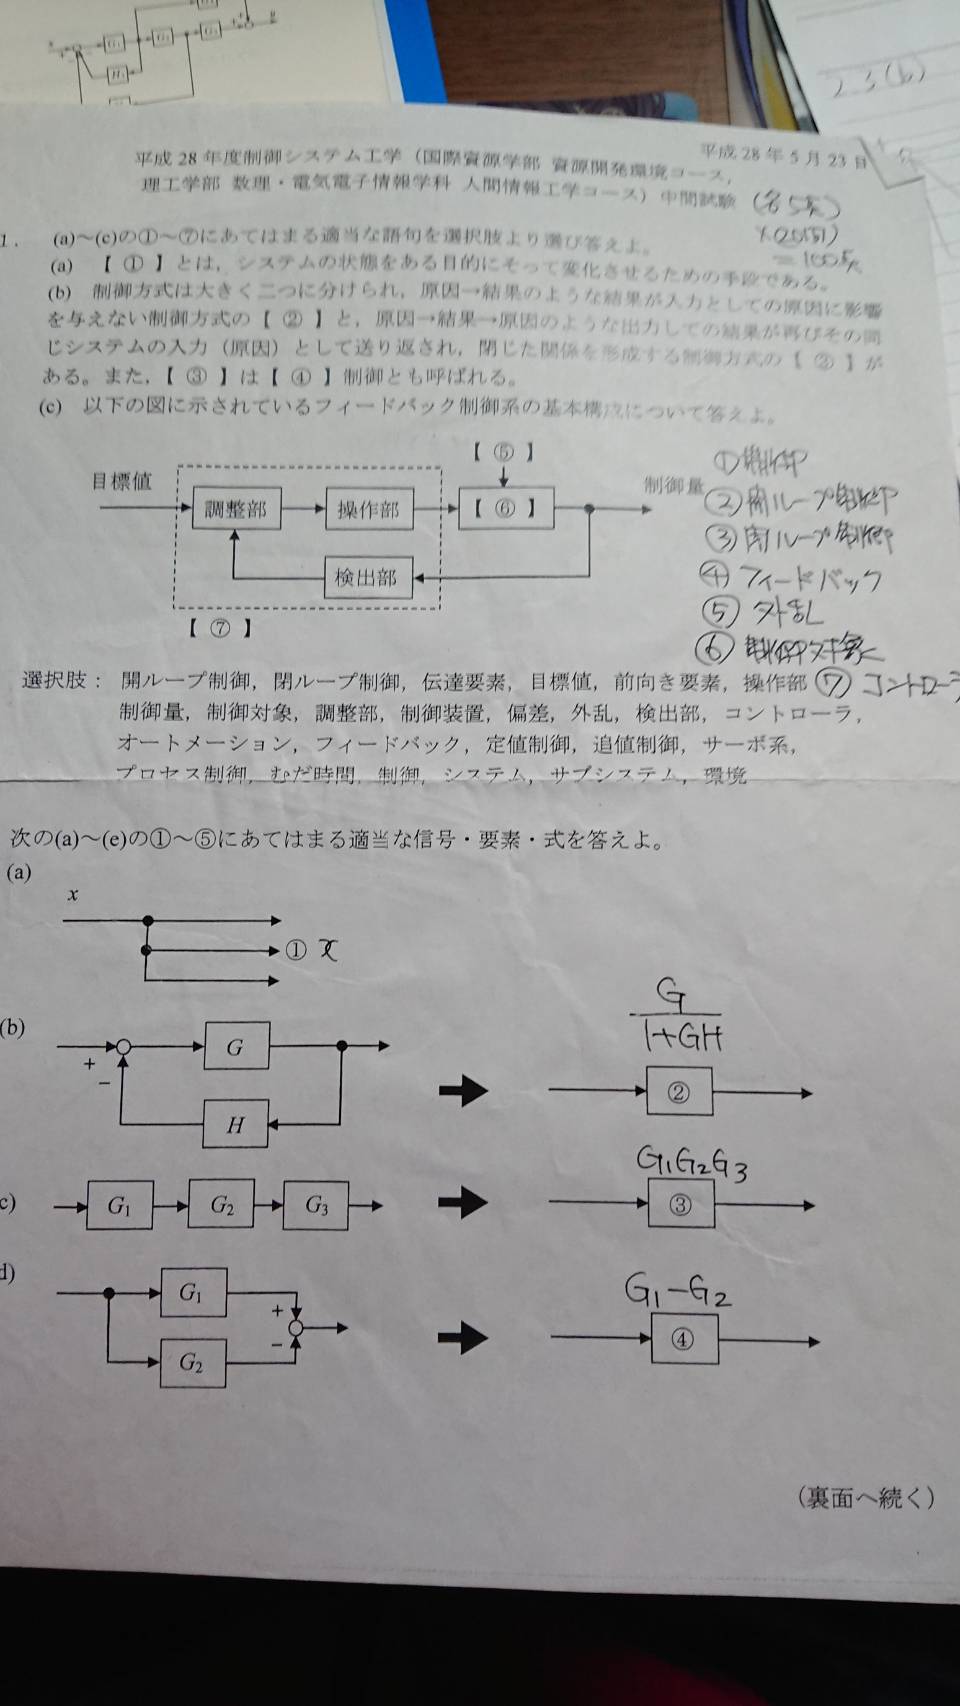 2.3(b)
平成 28 年 5 月 23 日
平成 28 年度制御システム工学（国際資源学部 資源開発環境コース,
理工学部 数理・電気電子情報学科 人間情報工学コース）中間試験 (各5点)
×(20問)
=100点
1. (a)～(c)の①～⑦にあてはまる適当な語句を選択肢より選び答えよ。
(a) 【 ① 】とは，システムの状態をある目的にそって変化させるための手段である。
(b) 制御方式は大きく二つに分けられ，原因→結果のような結果が入力としての原因に影響
を与えない制御方式の【 ② 】と，原因→結果→原因のような出力しての結果が再びその同
じシステムの入力（原因）として送り返され，閉じた関係を形成する制御方式の【 ③ 】が
ある。また，【 ③ 】は【 ④ 】制御とも呼ばれる。
(c) 以下の図に示されているフィードバック制御系の基本構成について答えよ。
【 ⑤ 】
目標値
調整部
操作部
【 ⑥ 】
制御量
検出部
【 ⑦ 】
①制御
②開ループ制御
③閉ループ制御
④フィードバック
⑤外乱
⑥制御対象
⑦コントローラ
選択肢： 開ループ制御，閉ループ制御，伝達要素，目標値，前向き要素，操作部
制御量，制御対象，調整部，制御装置，偏差，外乱，検出部，コントローラ，
オートメーション，フィードバック，定値制御，追値制御，サーボ系，
プロセス制御，むだ時間，制御，システム，サブシステム，環境
次の(a)～(e)の①～⑤にあてはまる適当な信号・要素・式を答えよ。
(a)
x
① x
(b)
+
−
G
H
G/(1+GH)
②
c)
G1
G2
G3
G1G2G3
③
d)
G1
G2
+
−
G1−G2
④
（裏面へ続く）